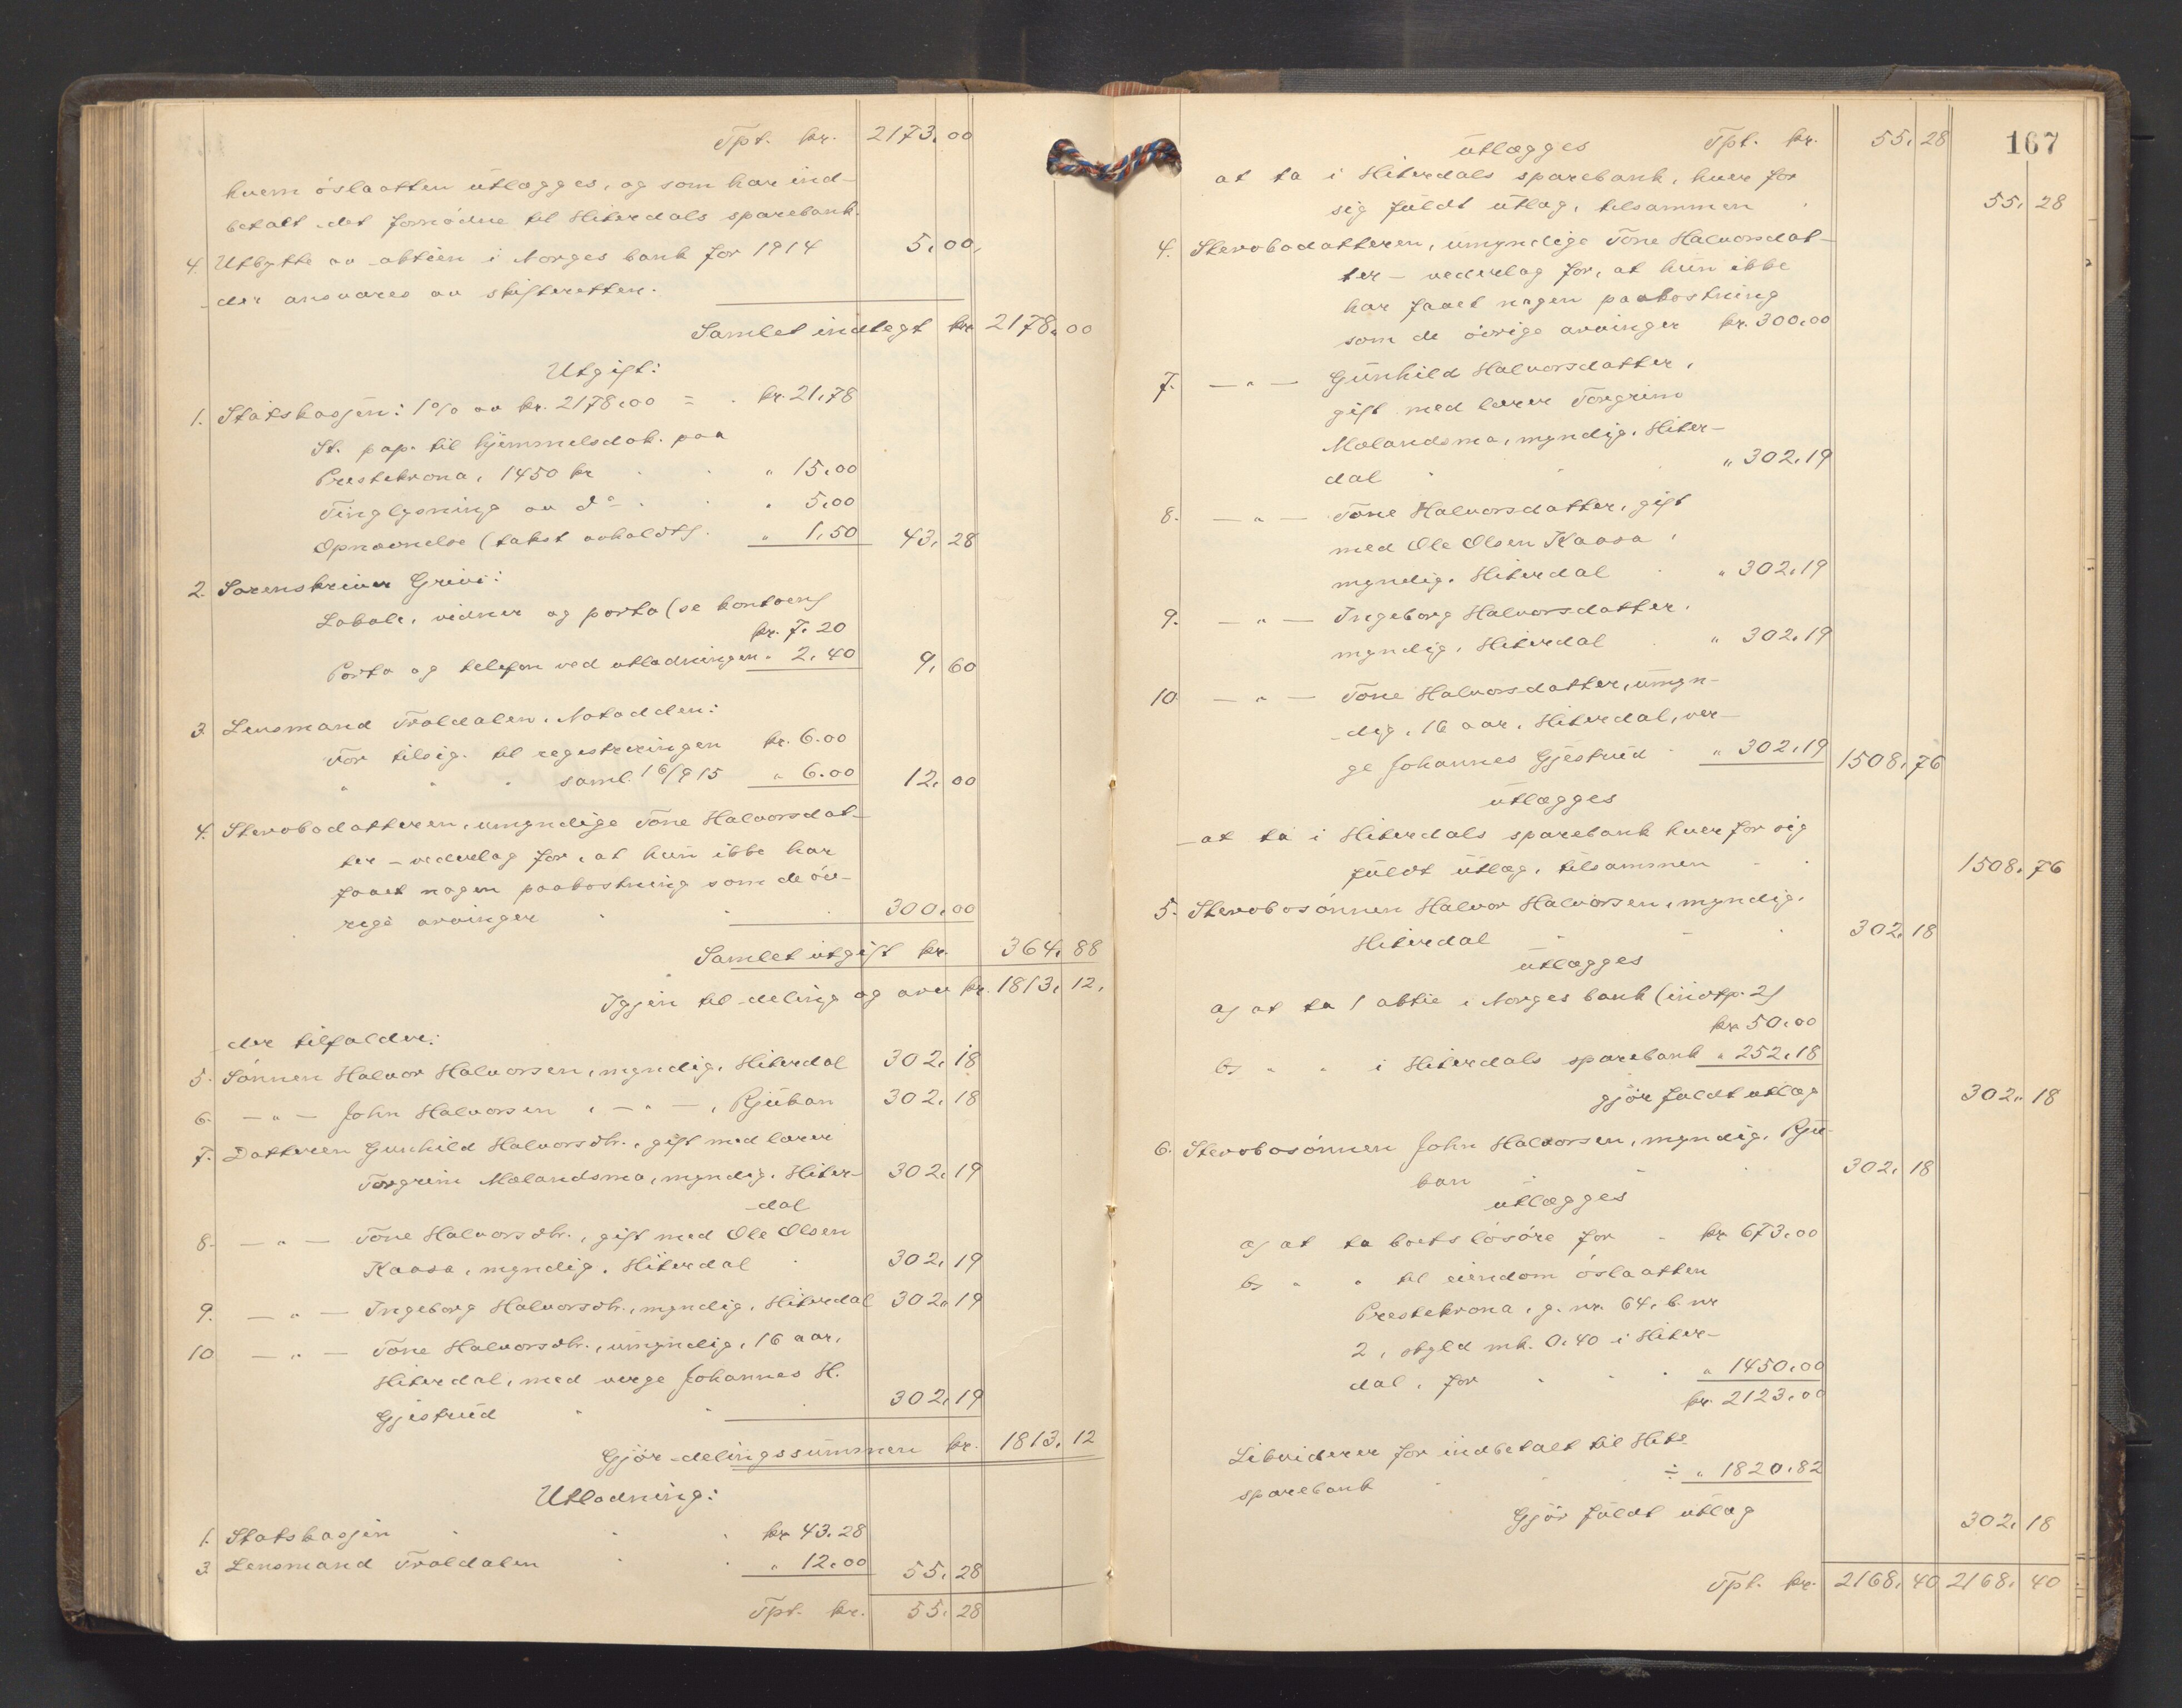 Tpt. kr. 2173.00
hvem óslaatten utlægges, og som har ind-
betalt det fornödne til Hiterdals sparebank.
4. Utbytte av aktien i Norges bank for 1914 5.00,
der ansvares av skifteretten.
Samlet indtegt kr 2178.00
Utgift:
1. Statskassen: 1% av kr. 2178.00 = kr. 21.78
St. pap. til hjemmelsdok. paa
Prestekrona, 1450 kr " 15.00
Tinglysning av do " 5.00
Opnævnelse (takst avholdt). " 1,50 43,28
2. Sorenskriver Grivi:
Lokale, vidner og porto (se kontoen)
kr. 7.20
Porto og telefon ved utlodningen " 2.40 9,60
3 Lensmand Troldalen, Notodden:
For tilsig. til registreringen kr. 6.00
" " " saml. 16/9 15 " 6.00 12,00
4. Stervbodatteren, umyndige Tone Halvorsdat-
ter - vederlag for, at hun ikke har
faaet nogen paakostning som de öv-
rige arvinger 300.00
Samlet utgift kr. 364,88
Igjen til deling og arv kr. 1813,12,
der tilfalder:
5. Sönnen Halvor Halvorsen, myndig, Hiterdal 302,18
6. — " — John Halvorsen, — " —, Rjukan 302,18
7. Datteren Gunhild Halvorsdtr., gift med lærer
Torgrim Mælandsmo, myndig, Hiter- 302,19
dal
8. — " — Tone Halvorsdtr., gift med Ole Olsen
Kaasa, myndig, Hiterdal 302,19
9. — " — Ingeborg Halvorsdtr., myndig, Hiterdal 302,19
10 — " — Tone Halvorsdtr., umyndig, 16 aar,
Hiterdal, med verge Johannes H.
Gjestrud 302,19
Gjör delingssummen kr. 1813,12
Utlodning:
1. Statskassen kr 43.28
3 Lensmand Troldalen " 12.00 55,28
Tpt. kr. 55,28
167
Tpt. kr. 55,28
utlægges
at ta i Hiterdals sparebank, hver for
sig fuldt utlag, tilsammen 55,28
4. Stervbodatteren, umyndige Tone Halvorsdat-
ter - vederlag for, at hun ikke
har faaet nogen paakostning
som de övrige arvinger kr. 300.00
7. — " — Gunhild Halvorsdatter,
gift med lærer Torgrim
Mælandsmo, myndig, Hiter-
dal " 302.19
8. — " — Tone Halvorsdatter, gift
med Ole Olsen Kaasa,
myndig, Hiterdal " 302.19
9. — " — Ingeborg Halvorsdatter,
myndig, Hiterdal " 302.19
10 — " — Tone Halvorsdatter, umyn-
dig, 16 aar, Hiterdal, ver-
ge Johannes Gjestrud " 302.19 1508,76
utlægges
at ta i Hiterdals sparebank hver for sig
fuldt utlag, tilsammen 1508,76
5. Stervbosönnen Halvor Halvorsen, myndig,
Hiterdal 302,18
utlægges
a) at ta 1 aktie i Norges bank (indtp. 2)
kr 50.00
b) " " i Hiterdals sparebank " 252.18
gjör fuldt utlag 302,18
6. Stervbosönnen John Halvorsen, myndig, Rju-
kan 302,18
utlægges
a) at ta boets lösöre for kr 673.00
b) " " til eiendom óslaatten
Prestekrona, g. nr. 64, b. nr
2, skyld mk. 0.40 i Hiter-
dal, for " 1450.00
kr. 2123.00
Likviderer for indbetalt til Hits
sparebank ÷ " 1820.82
Gjör fuldt utlag 302,18
Tpt. kr. 2168,40 2168,40